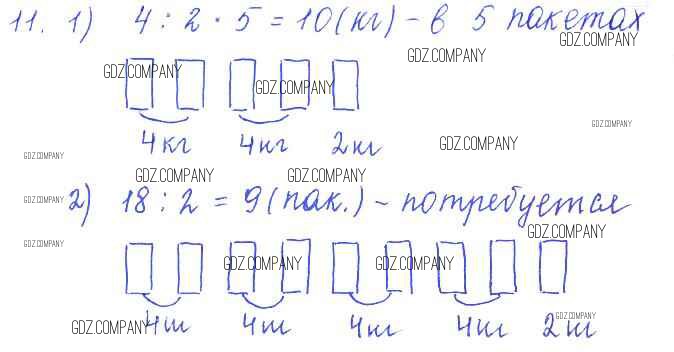 11. 1) 4 : 2 · 5 = 10 (кг) – в 5 пакетах
GDZ.COMPANY
GDZ.COMPANY
GDZ.COMPANY
GDZ.COMPANY
GDZ.COMPANY
4кг 4кг 2кг
GDZ.COMPANY
GDZ.COMPANY
GDZ.COMPANY GDZ.COMPANY
GDZ.COMPANY
2) 18 : 2 = 9 (пак.) – потребуется
GDZ.COMPANY
GDZ.COMPANY
GDZ.COMPANY GDZ.COMPANY
GDZ.COMPANY
4кг 4кг 4кг 4кг 2кг
GDZ.COMPANY